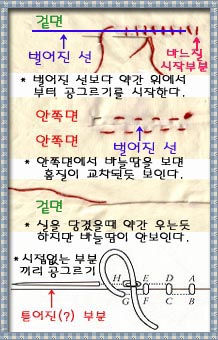 겉면
벌어진 선
바느질
시작부분
* 벌어진 선보다 약간 위에서
부터 공그르기를 시작한다.
안쪽면
안쪽면
벌어진 선
* 안쪽면에서 바늘땀을 보면
홈질이 교차된듯 보인다.
겉면
* 실을 당겼을때 약간 우는듯
하지만 바늘땀이 안보인다.
* 시접없는 부분
끼리 공그르기
H E D A
G F C B
틀어진(?) 부분